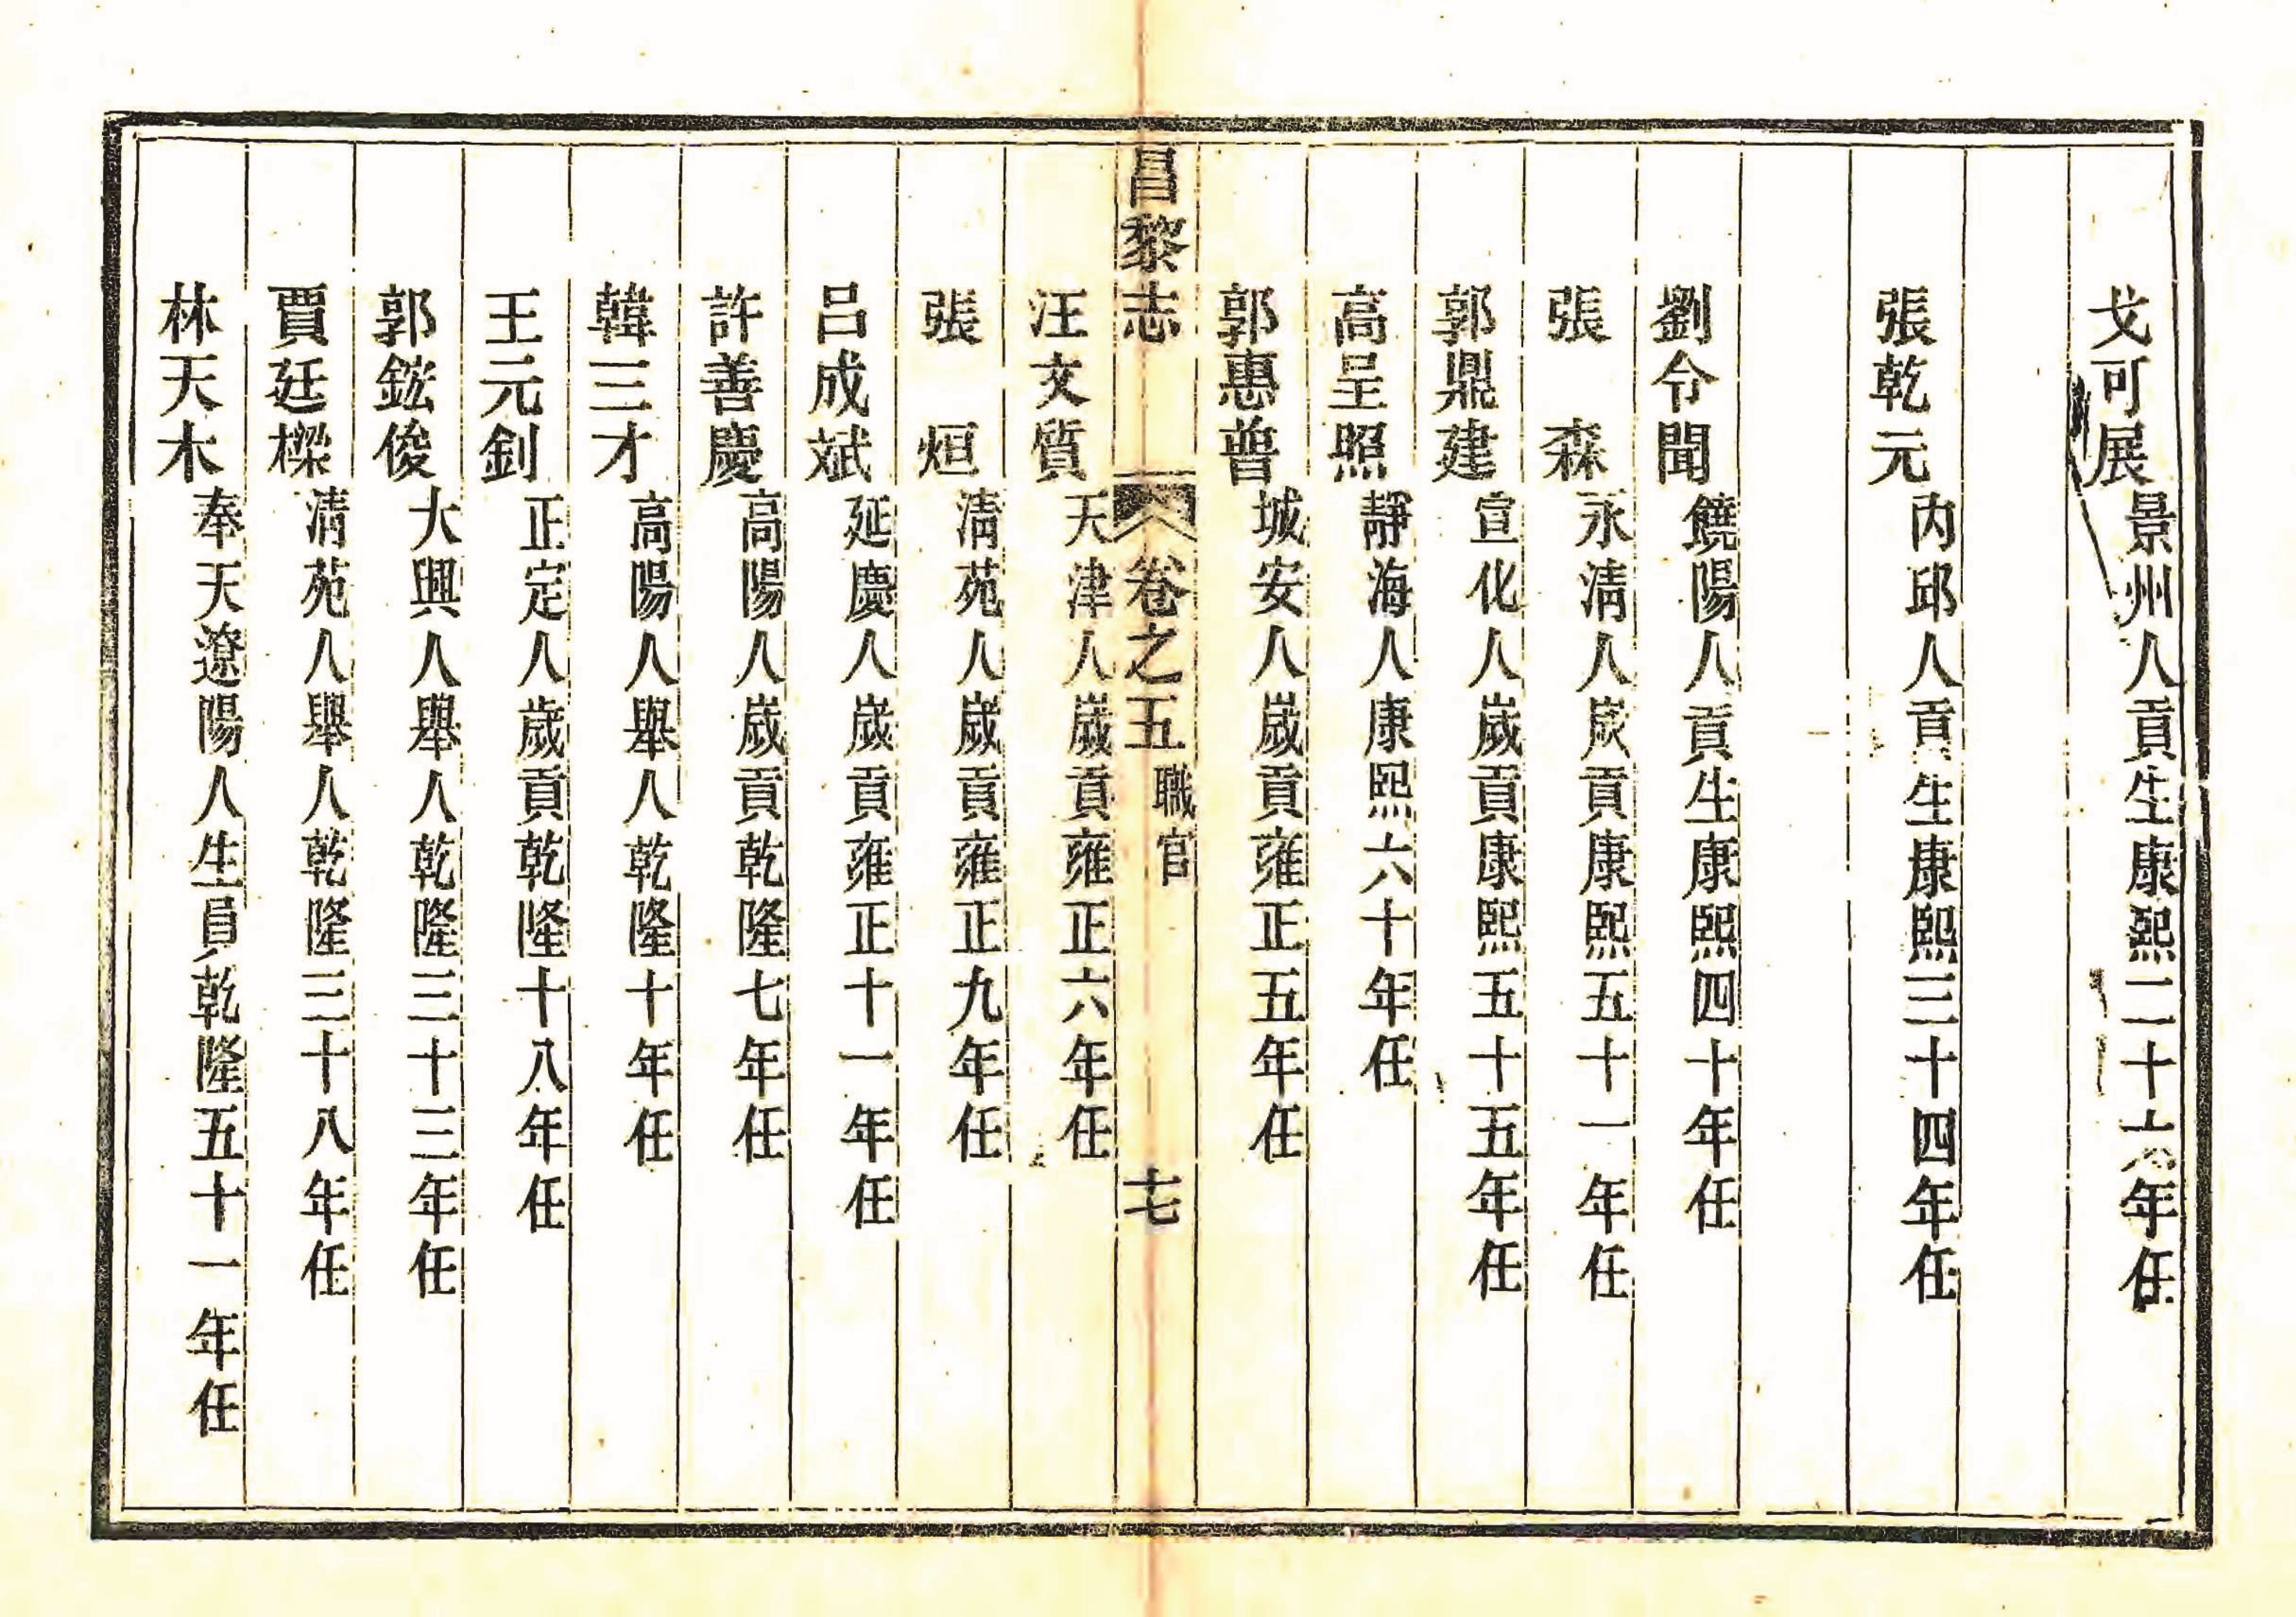 戈可展景州人貢生康熙二十六年任
張乾元內邱人貢生康熙三十四年任
劉令聞饒陽人貢生康熙四十年任
張森永清人歲貢康熙五十一年任
郭鼎建宣化人歲貢康熙五十五年任
高呈照靜海人康熙六十年任
郭惠普城安人歲貢雍正五年任
昌黎志 卷之五 職官 十七
汪文質天津人歲貢雍正六年任
張烜清苑人歲貢雍正九年任
呂成斌延慶人歲貢雍正十一年任
許善慶高陽人歲貢乾隆七年任
韓三才高陽人舉人乾隆十年任
王元釗正定人歲貢乾隆十八年任
郭鋐俊大興人舉人乾隆三十三年任
賈廷樑清苑人舉人乾隆三十八年任
林天木奉天遼陽人生員乾隆五十一年任